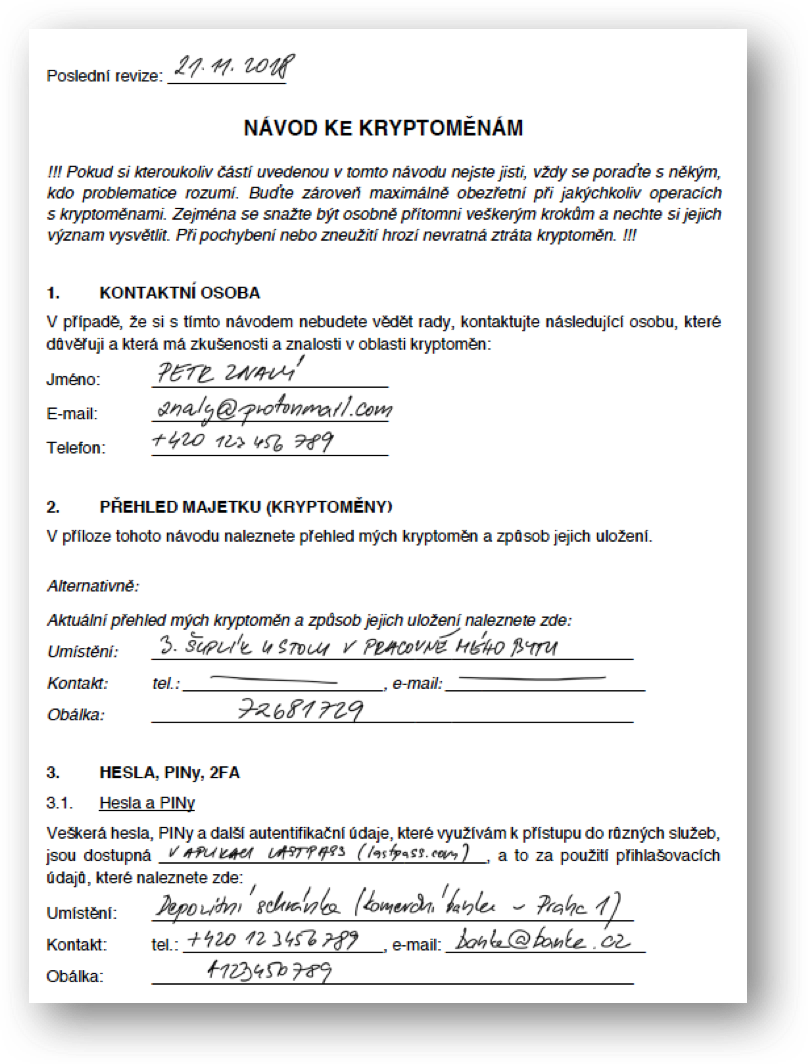 Poslední revize: 21. 11. 2018
NÁVOD KE KRYPTOMĚNÁM
!!! Pokud si kteroukoliv částí uvedenou v tomto návodu nejste jisti, vždy se poraďte s někým,
kdo problematice rozumí. Buďte zároveň maximálně obezřetní při jakýchkoliv operacích
s kryptoměnami. Zejména se snažte být osobně přítomni veškerým krokům a nechte si jejich
význam vysvětlit. Při pochybení nebo zneužití hrozí nevratná ztráta kryptoměn. !!!
1. KONTAKTNÍ OSOBA
V případě, že si s tímto návodem nebudete vědět rady, kontaktujte následující osobu, které
důvěřuji a která má zkušenosti a znalosti v oblasti kryptoměn:
Jméno: PETR ZNALÝ
E-mail: znaly@protonmail.com
Telefon: +420 123 456 789
2. PŘEHLED MAJETKU (KRYPTOMĚNY)
V příloze tohoto návodu naleznete přehled mých kryptoměn a způsob jejich uložení.
Alternativně:
Aktuální přehled mých kryptoměn a způsob jejich uložení naleznete zde:
Umístění: 3. ŠUPLÍK U STOLU V PRACOVNĚ MÉHO BYTU
Kontakt: tel.: , e-mail:
Obálka: 72681729
3. HESLA, PINy, 2FA
3.1. Hesla a PINy
Veškerá hesla, PINy a další autentifikační údaje, které využívám k přístupu do různých služeb,
jsou dostupná V APLIKACI LASTPASS (lastpass.com), a to za použití přihlašovacích
údajů, které naleznete zde:
Umístění: Depozitní schránka (Komerční banka – Praha 1)
Kontakt: tel.: +420 123456789, e-mail: banka@banka.cz
Obálka: 1123456789